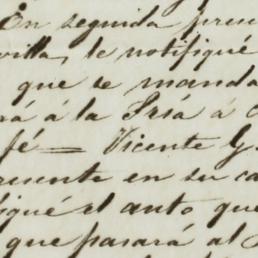 En seguida prese
villa, le notifiqué
que se manda
rá á la Sría á
fé = Vicente G
resente en su ca
fiqué el auto que
que pasará al